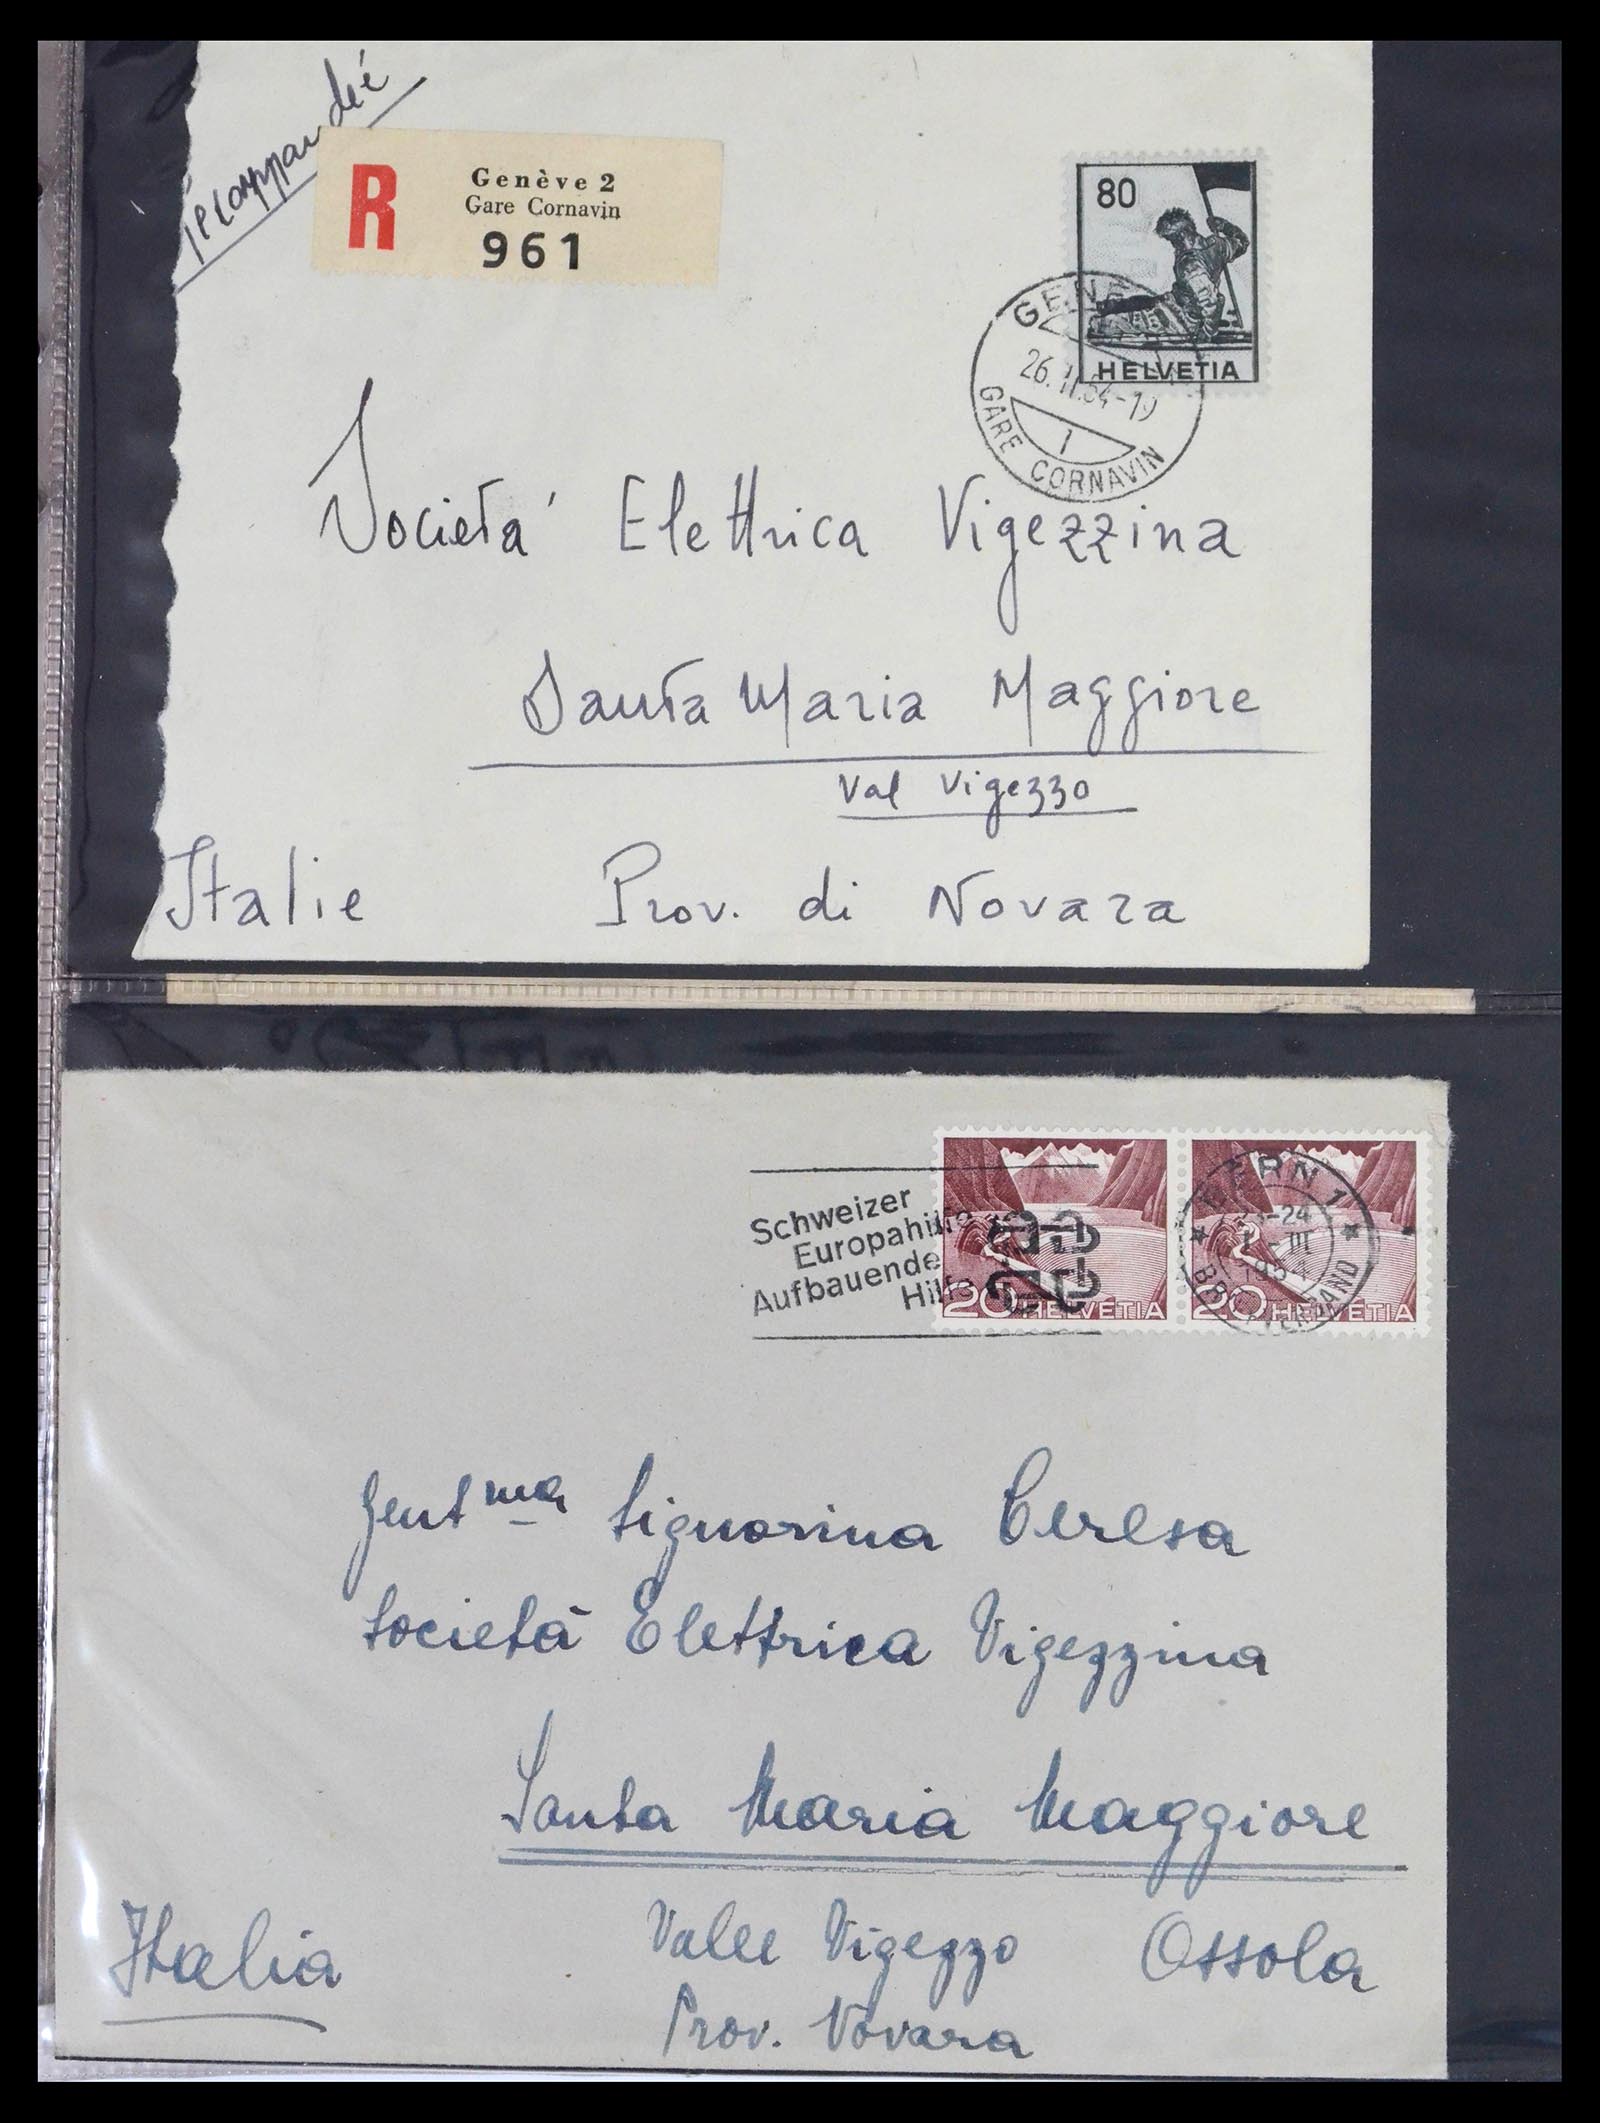 Recommandé
R
Genève 2
Gare Cornavin
961
80
HELVETIA
GENÈVE
26. II. 54-19
1
GARE CORNAVIN
Società Elettrica Vigezzina
Santa Maria Maggiore
Val Vigezzo
Italie Prov. di Novara
Schweizer
Europahilfe
Aufbauende
Hilfe
20 HELVETIA
20 HELVETIA
BERN 1
-24
III
1954
Gentma Signorina Ceresa
Società Elettrica Vigezzina
Santa Maria Maggiore
Italia Valle Vigezzo Ossola
Prov. Novara